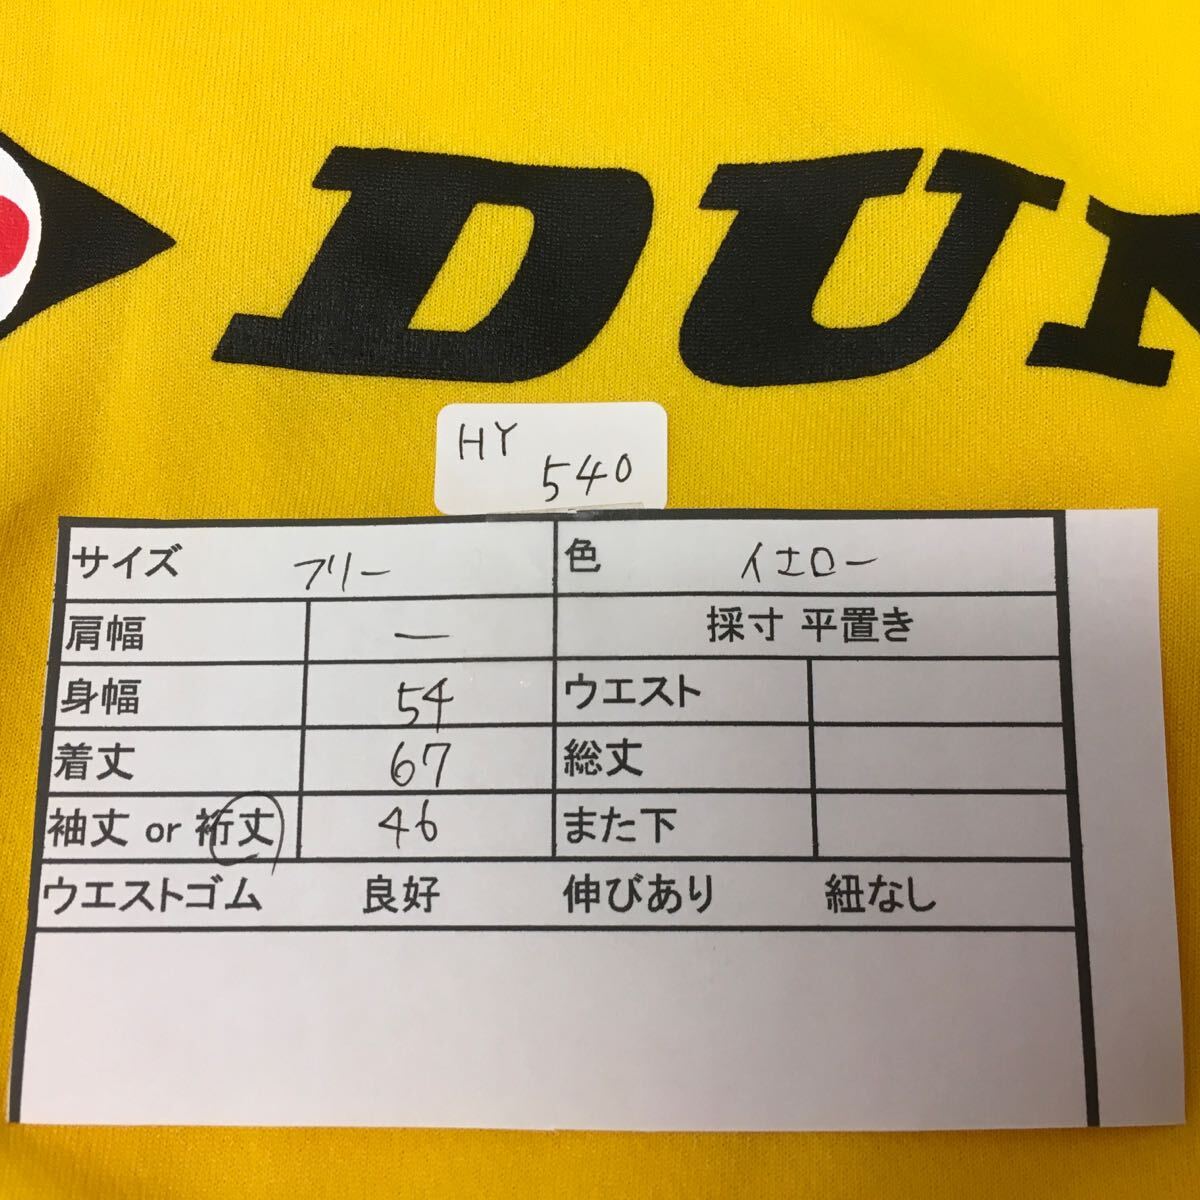 DUN
HY
540
サイズ フリー 色 イエロー
肩幅 ー 採寸 平置き
身幅 54 ウエスト
着丈 67 総丈
袖丈 or 裄丈 46 また下
ウエストゴム 良好 伸びあり 紐なし